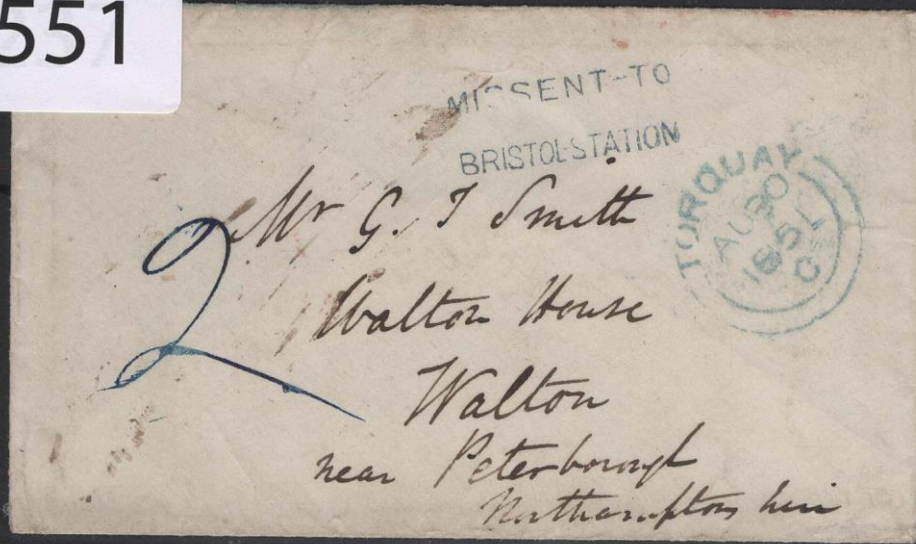 551
MISSENT-TO
BRISTOL-STATION
TORQUAY
AU 30
1851
C
2
Mr G. J Smith
Walton House
Walton
near Peterborough
Northamptonshire